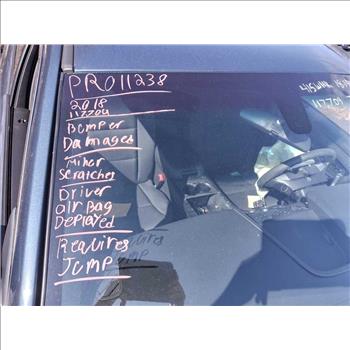 PRO11238
2018
117704
Bomper
Damages
Miner
Scratches
Driver
air Bag
Deployed
Requires
Jump
117701